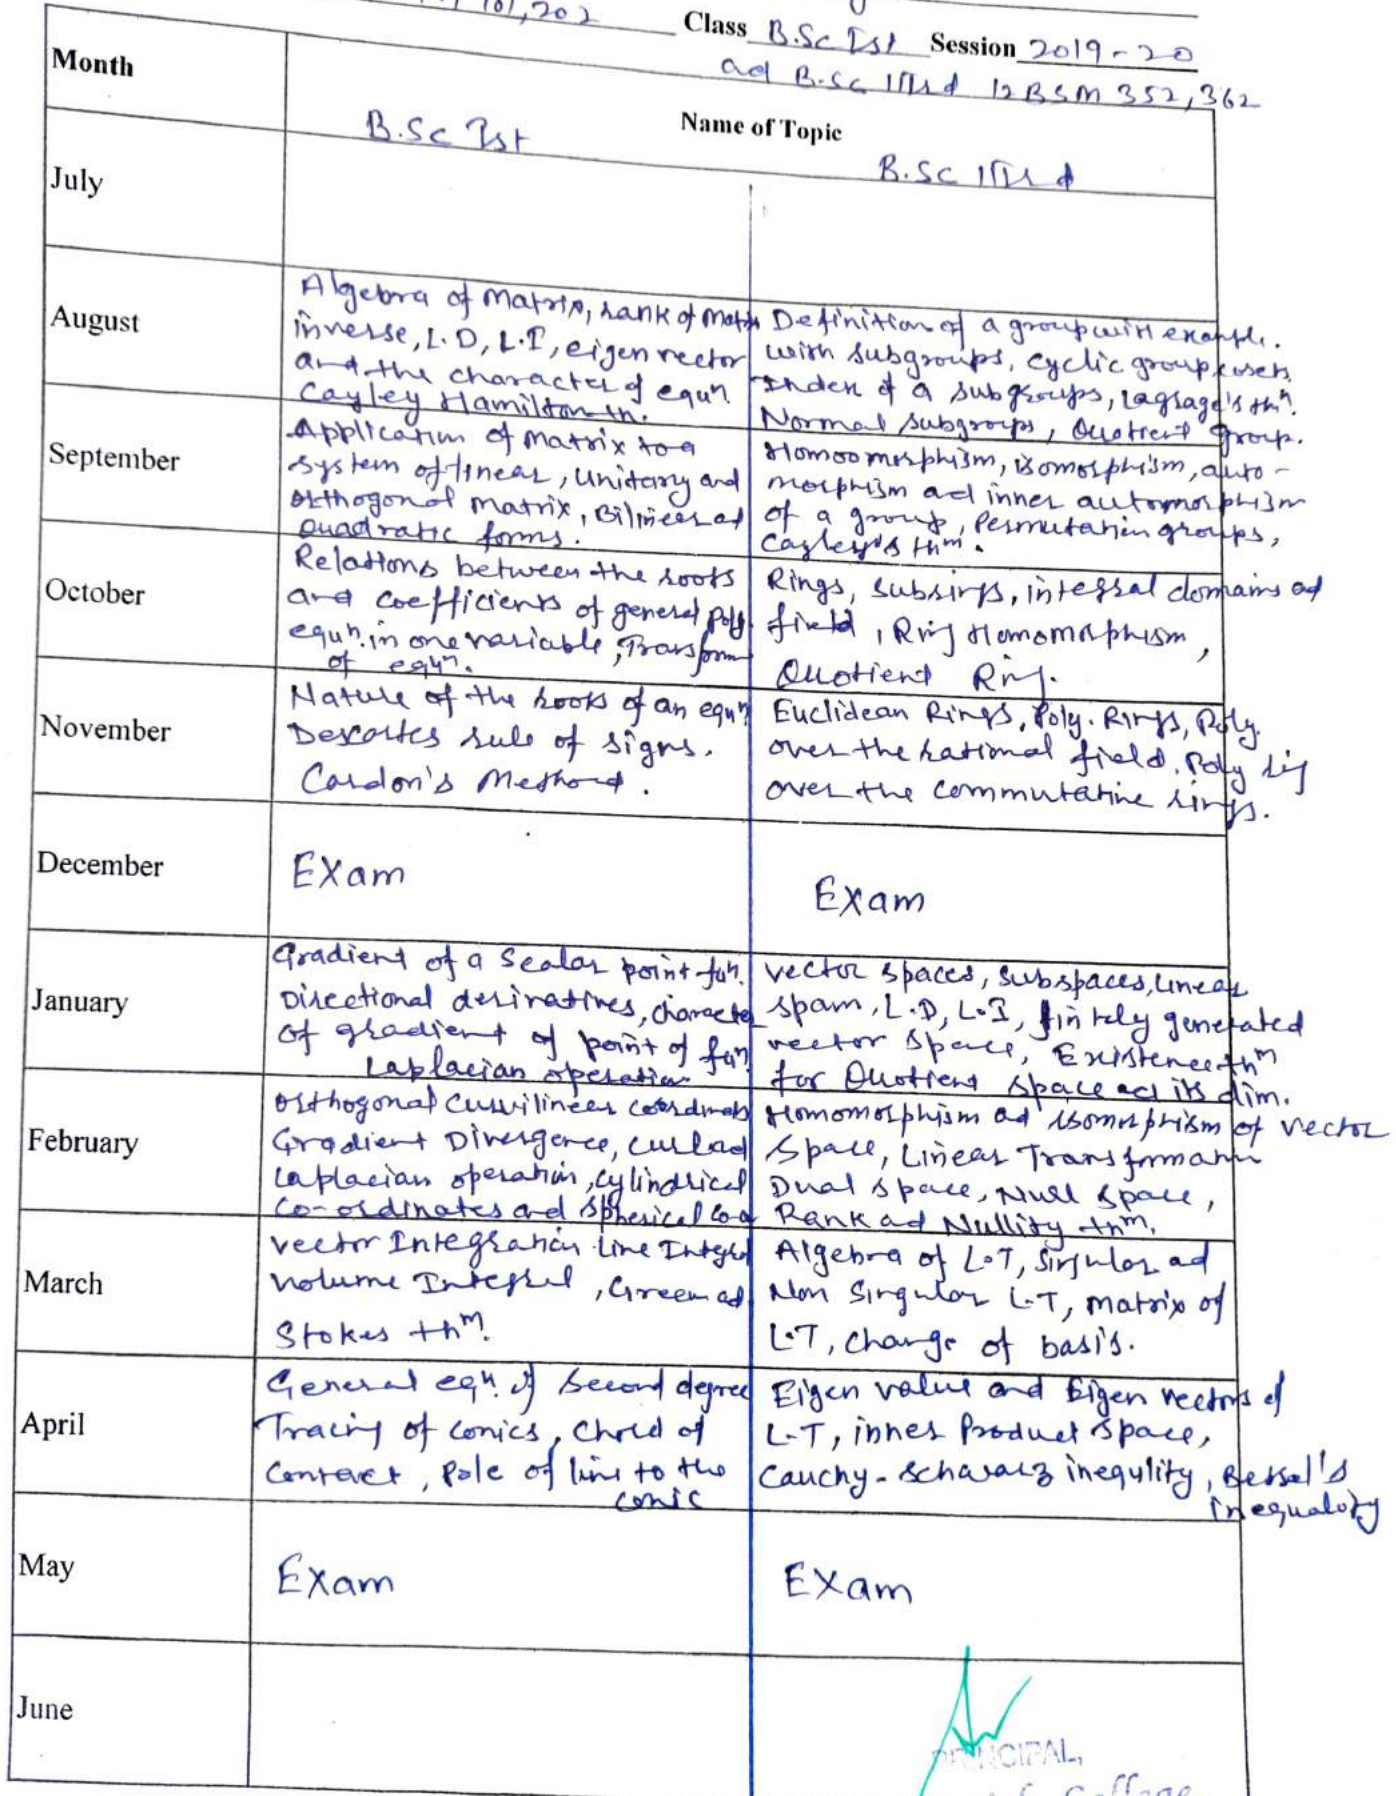 101,202 Class B.Sc Ist Session 2019-20
ad B.Sc IIIrd 12BSM 352,362
Month
Name of Topic
B.Sc Ist
B.Sc IIIrd
July
August
Algebra of Matrix, rank of Matrix
inverse, L.D, L.I, eigen vector
and the character of equn.
Cayley Hamilton th.
Definition of a group with example.
with subgroups, cyclic group cosets
Index of a subgroups, Lagrage's thm.
Normal subgroups, Quotient group.
September
Application of Matrix to a
system of linear, Unitary and
orthogonal Matrix, Bilinear ad
quadratic forms.
Homoomorphism, isomorphism, auto-
morphism ad inner automorphism
of a group, Permutation groups,
Cayley's thm.
October
Relations between the roots
and coefficients of general poly.
equn. in one variable, Transform
of equn.
Rings, subrings, integral domains ad
field, Ring Homomorphism,
Quotient Ring.
November
Nature of the roots of an equn
Descartes rule of signs.
Cardon's Method.
Euclidean Rings, Poly. Rings, Poly.
over the rational field. Poly ring
over the commutative rings.
December
Exam
Exam
January
Gradient of a Scalar point fun.
Directional derivatives, character
of gradient of point of fun.
Laplacian operation
Vector spaces, subspaces, Linear
spam, L.D, L.I, finitely generated
vector space, Existence thm
for Quotient space ad its dim.
February
Orthogonal curvilinear coordinates
Gradient Divergence, curl ad
Laplacian operation, cylindrical
Co-ordinates and spherical coo
Homomorphism ad isomorphism of vector
space, Linear Transformation
Dual space, Null space,
Rank ad Nullity thm.
March
Vector Integration Line Integral
Volume Integral, Green ad
Stokes thm.
Algebra of L.T, Singular ad
Non Singular L.T, matrix of
L.T, change of basis.
April
General eqn. of Second degree
Tracing of conics, Chord of
Contact, Pole of line to the
conic
Eigen value and Eigen vectors of
L.T, inner Product space,
Cauchy-Schwarz inequlity, Bessel's
inequality
May
Exam
Exam
June
PRINCIPAL,
College